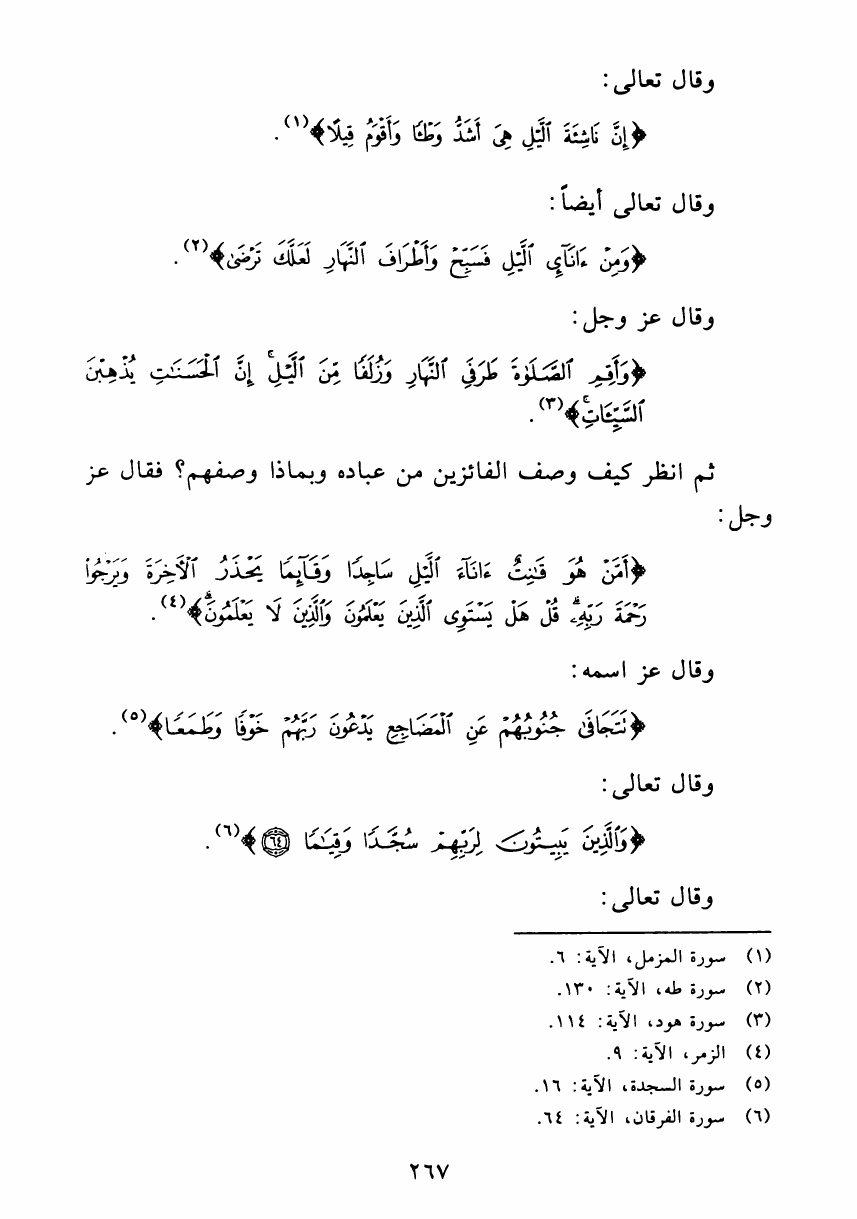 وقال تعالى:
﴿إِنَّ نَاشِئَةَ ٱلَّيْلِ هِىَ أَشَدُّ وَطْـًٔا وَأَقْوَمُ قِيلًا﴾(١).
وقال تعالى أيضاً:
﴿وَمِنْ ءَانَآئِ ٱلَّيْلِ فَسَبِّحْ وَأَطْرَافَ ٱلنَّهَارِ لَعَلَّكَ تَرْضَىٰ﴾(٢).
وقال عز وجل:
﴿وَأَقِمِ ٱلصَّلَوٰةَ طَرَفَىِ ٱلنَّهَارِ وَزُلَفًا مِّنَ ٱلَّيْلِ ۚ إِنَّ ٱلْحَسَنَـٰتِ يُذْهِبْنَ
ٱلسَّيِّـَٔاتِ ۚ﴾(٣).
ثم انظر كيف وصف الفائزين من عباده وبماذا وصفهم؟ فقال عز
وجل:
﴿أَمَّنْ هُوَ قَـٰنِتٌ ءَانَآءَ ٱلَّيْلِ سَاجِدًا وَقَآئِمًا يَحْذَرُ ٱلْـَٔاخِرَةَ وَيَرْجُوا۟
رَحْمَةَ رَبِّهِۦ ۗ قُلْ هَلْ يَسْتَوِى ٱلَّذِينَ يَعْلَمُونَ وَٱلَّذِينَ لَا يَعْلَمُونَ ۗ﴾(٤).
وقال عز اسمه:
﴿نَتَجَافَىٰ جُنُوبُهُمْ عَنِ ٱلْمَضَاجِعِ يَدْعُونَ رَبَّهُمْ خَوْفًا وَطَمَعًا﴾(٥).
وقال تعالى:
﴿وَٱلَّذِينَ يَبِيتُونَ لِرَبِّهِمْ سُجَّدًا وَقِيَـٰمًا ٦٤﴾(٦).
وقال تعالى:
(١) سورة المزمل، الآية: ٦.
(٢) سورة طه، الآية: ١٣٠.
(٣) سورة هود، الآية: ١١٤.
(٤) الزمر، الآية: ٩.
(٥) سورة السجدة، الآية: ١٦.
(٦) سورة الفرقان، الآية: ٦٤.
٢٦٧